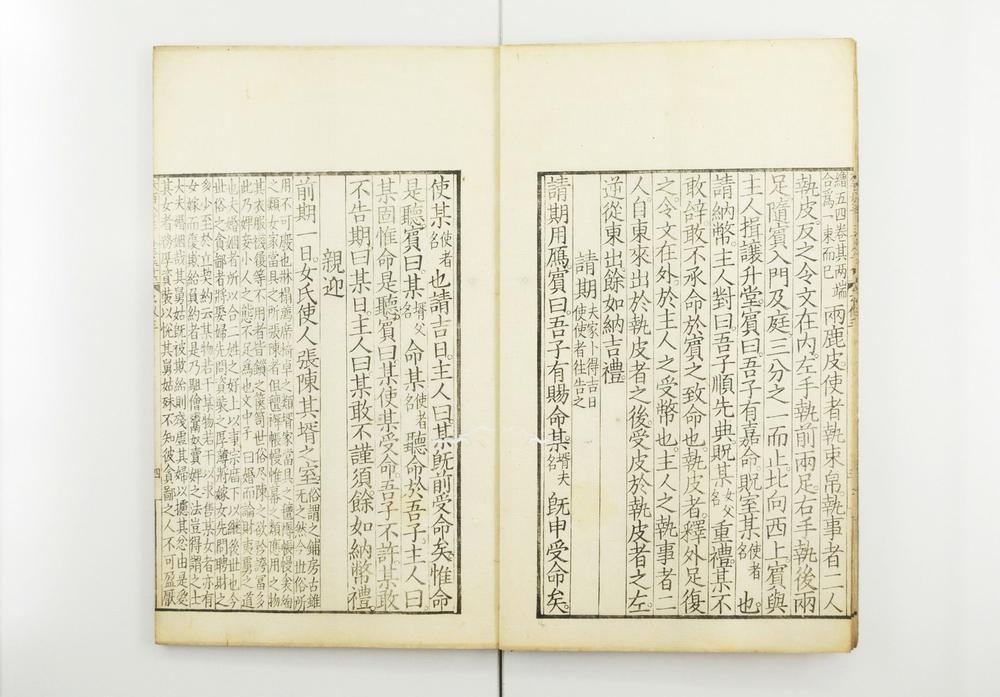 繒五四卷其兩端
合爲一束而已
兩鹿皮使者執束帛執事者二人
執皮反之令文在内左手執前兩足右手執後兩
足隨賓入門及庭三分之一而止北向西上賓與
主人揖讓升堂賓曰吾子有嘉命貺室某使者名也
請納幣主人對曰吾子順先典貺某女父名重禮某不
敢辭敢不承命於賓之致命也執皮者釋外足復
之令文在外於主人之受幣也主人之執事者二
人自東來出於執皮者之後受皮於執皮者之左
逆從東出餘如納吉禮
請期夫家卜得吉日使使者往告之
請期用鴈賓曰吾子有賜命某壻父名旣申受命矣
使某使者名也請吉日主人曰某旣前受命矣惟命
是聽賓曰某壻父名命某使者名聽命於吾子主人曰
某固惟命是聽賓曰某使某受命吾子不許某敢
不告期曰某日主人曰某敢不謹須餘如納幣禮
親迎
前期一日女氏使人張陳其壻之室俗謂之鋪房古雖無之然今世俗所
用不可廢也牀榻薦席椅卓之類壻家當具之氊褥帳幔衾綯
之類女家當具之所張陳者但氊褥帳幔帷幕之類應用之物
其衣服襪履等不用者皆鏁之篋笥世俗盡陳之欲矜誇富多
此乃婢妾小人之態不足爲也文中子曰婚而論財夷虜之道
也夫婚姻者所以合二姓之好上以事宗廟下以繼後世也今
世俗之貪鄙者將娶婦先問資裝之厚薄將嫁女先問聘財之
多少至於立契約云某物若干某物若干以求售某女者亦有
女嫁而復欺紿負約者是乃駔儈鬻奴賣婢之法豈得謂之士
大夫婚姻哉其舅姑旣被欺紿則殘虐其婦以攄其忿由是愛
其女者務厚資裝以恱其舅姑殊不知彼貪鄙之人不可盈厭
四